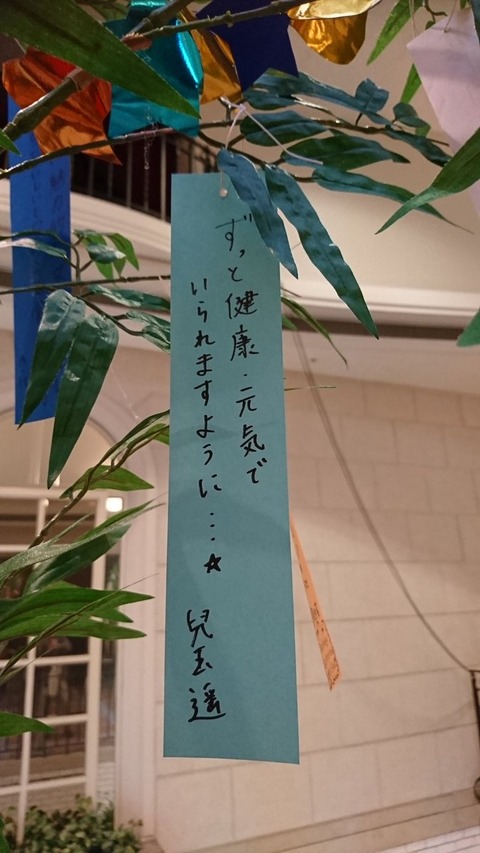 ずっと健康・元気で
いられますように…☆
兒玉遥